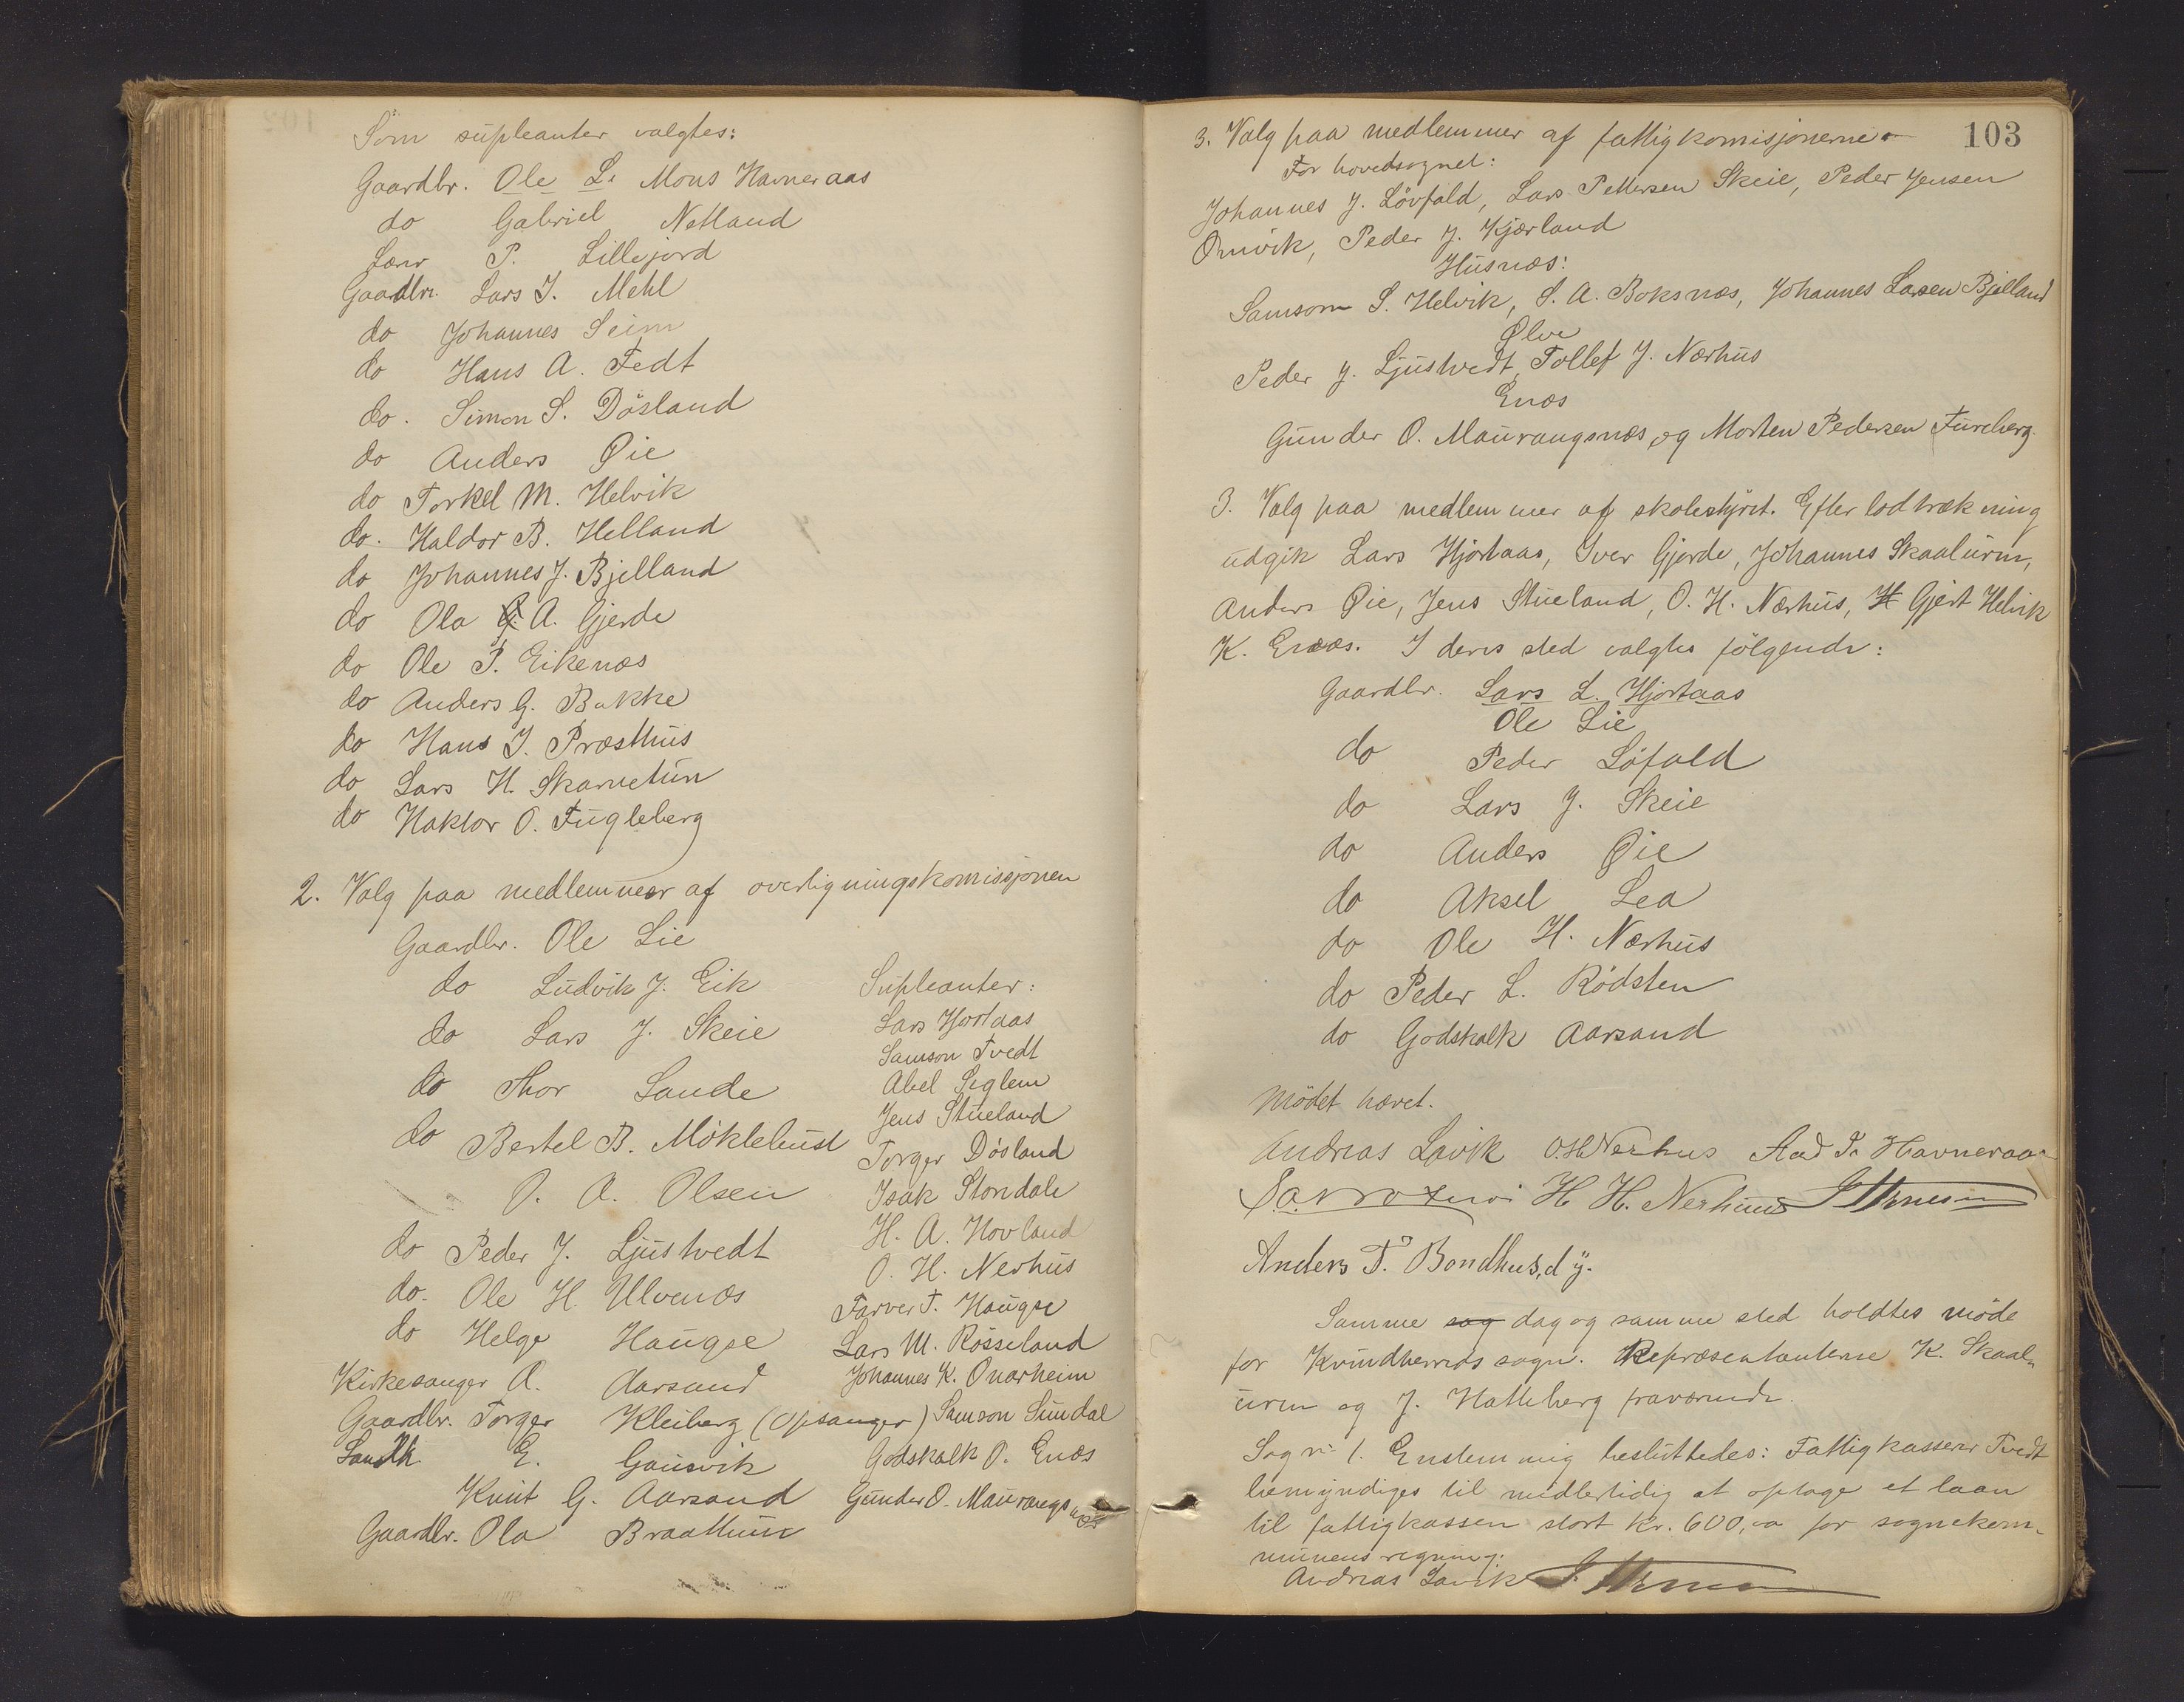 Som supleanter valgtes:
Gaardbr. Ole L. Mons Havneraas
do Gabriel Netland
Lærer P. Lillejord
Gaardbr. Lars J. Mehl
do Johannes Seim
do Hans A. Tedt
do. Simon S. Dösland
do Anders Øie
do Torkel M. Helvik
do. Haldor B. Helland
do Johannes J. Bjelland
do Ola A. Gjerde
do Ole P. Eikenæs
do Anders G. Bakke
do Hans J. Præsthus
do Lars H. Skarvetun
do Haktor O. Fugleberg
2. Valg paa medlemmer af overligningskomissjonen
Gaardbr. Ole Lie
do Ludvik J. Eik
do Lars J. Skeie
do Thor Sande
do Bertel B. Möklebust
O. A. Olsen
do Peder J. Ljustvedt
do. Ole H. Ulvenæs
do Helge Haugse
Kirkesanger A. Aarsand
Gaardbr. Torger Kleiberg (Opsanger)
Landh. E. Gausvik
Knut G. Aarsand
Gaardbr. Ola Braathun
Supleanter:
Lars Hjortaas
Samson Tvedt
Abel Seglem
Jens Stueland
Torger Dösland
Isak Stondale
H. A. Hovland
O. H. Nerhus
Farver T. Haugse
Lars M. Rösseland
Johannes K. Onarheim
Samson Sundal
Godskalk O. Enæs
Gunder O. Maurangsnæs
103
3. Valg paa medlemmer af fattigkomisjonerne
For hovedsognet:
Johannes J. Lövfald, Lars Pettersen Skeie, Peder Jensen
Ømvik, Peder J. Kjærland
Husnæs:
Samson S. Helvik, S. A. Boksnæs, Johannes Larsen Bjelland
Ølve
Peder J. Ljustvedt, Tollef J. Nærhus
Enæs
Gunder O. Maurangsnæs og Morten Pedersen Fureberg.
3. Valg paa medlemmer af skolestyret. Efter lodtrækning
udgik Lars Hjortaas, Iver Gjerde, Johannes Skaaluren,
Anders Øie, Jens Stueland, O. H. Nærhus, H Gjert Helvik
K. Enæs. I deres sted valgtes fölgende:
Gaardbr. Lars L. Hjortaas
Ole Lie
do Peder Löfald
do Lars J. Skeie
do Anders Øie
do Aksel Lea
do Ole H. Nærhus
do Peder L. Rödsten
do Godskalk Aarsand
Mödet hævet.
Andreas Lavik O.H Nerhus Aad T. Havneraas
H. H. Nerhuus
Anders T. Bondhus, d y.
Samme sag dag og samme sted holdtes möde
for Kvindherreds sogn. Repræsentanterne K. Skaal-
uren og J. Hatteberg fraværende.
Sag n: 1. Enstemmig besluttedes: Fattigkasserer Tvedt
bemyndiges til midlertidig at optage et laan
til fattigkassen stort kr. 600,00 for sognekom-
munens regning.
Andreas Lavik